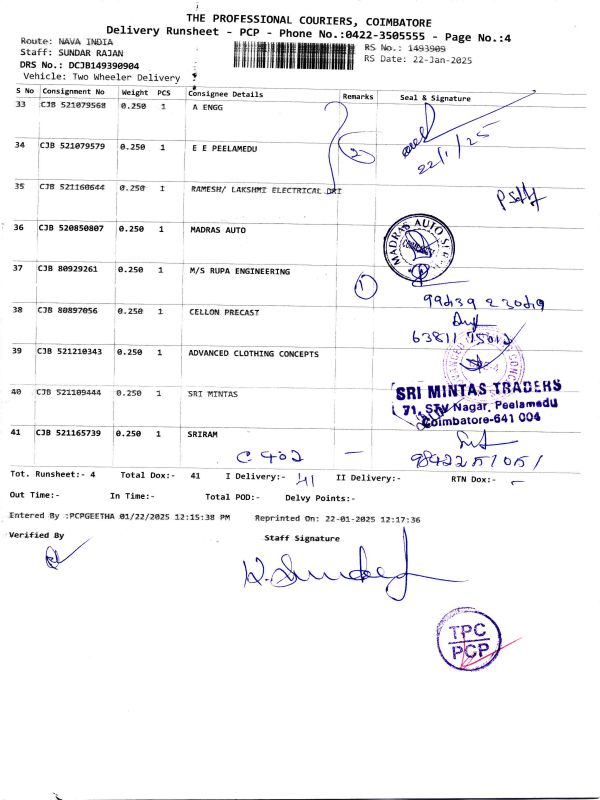 THE PROFESSIONAL COURIERS, COIMBATORE
Delivery Runsheet - PCP - Phone No.:0422-3505555 - Page No.:4
Route: NAVA INDIA
RS No.: 1493909
Staff: SUNDAR RAJAN
RS Date: 22-Jan-2025
DRS No.: DCJB149390904
Vehicle: Two Wheeler Delivery
S No Consignment No Weight PCS Consignee Details Remarks Seal & Signature
33 CJB 521079568 0.250 1 A ENGG
22/1/25
34 CJB 521079579 0.250 1 E E PEELAMEDU 2
35 CJB 521160644 0.250 1 RAMESH/ LAKSHMI ELECTRICAL DRI
36 CJB 520850807 0.250 1 MADRAS AUTO
MADRAS AUTO
37 CJB 80929261 0.250 1 M/S RUPA ENGINEERING 1
38 CJB 80897056 0.250 1 CELLON PRECAST
39 CJB 521210343 0.250 1 ADVANCED CLOTHING CONCEPTS
40 CJB 521109444 0.250 1 SRI MINTAS
SRI MINTAS TRADERS
71, STV Nagar, Peelamedu
Coimbatore-641 004
41 CJB 521165739 0.250 1 SRIRAM
C 402 -
Tot. Runsheet:- 4 Total Dox:- 41 I Delivery:- 41 II Delivery:- RTN Dox:- -
Out Time:- In Time:- Total POD:- Delvy Points:-
Entered By :PCPGEETHA 01/22/2025 12:15:38 PM Reprinted On: 22-01-2025 12:17:36
Verified By Staff Signature
TPC
PCP